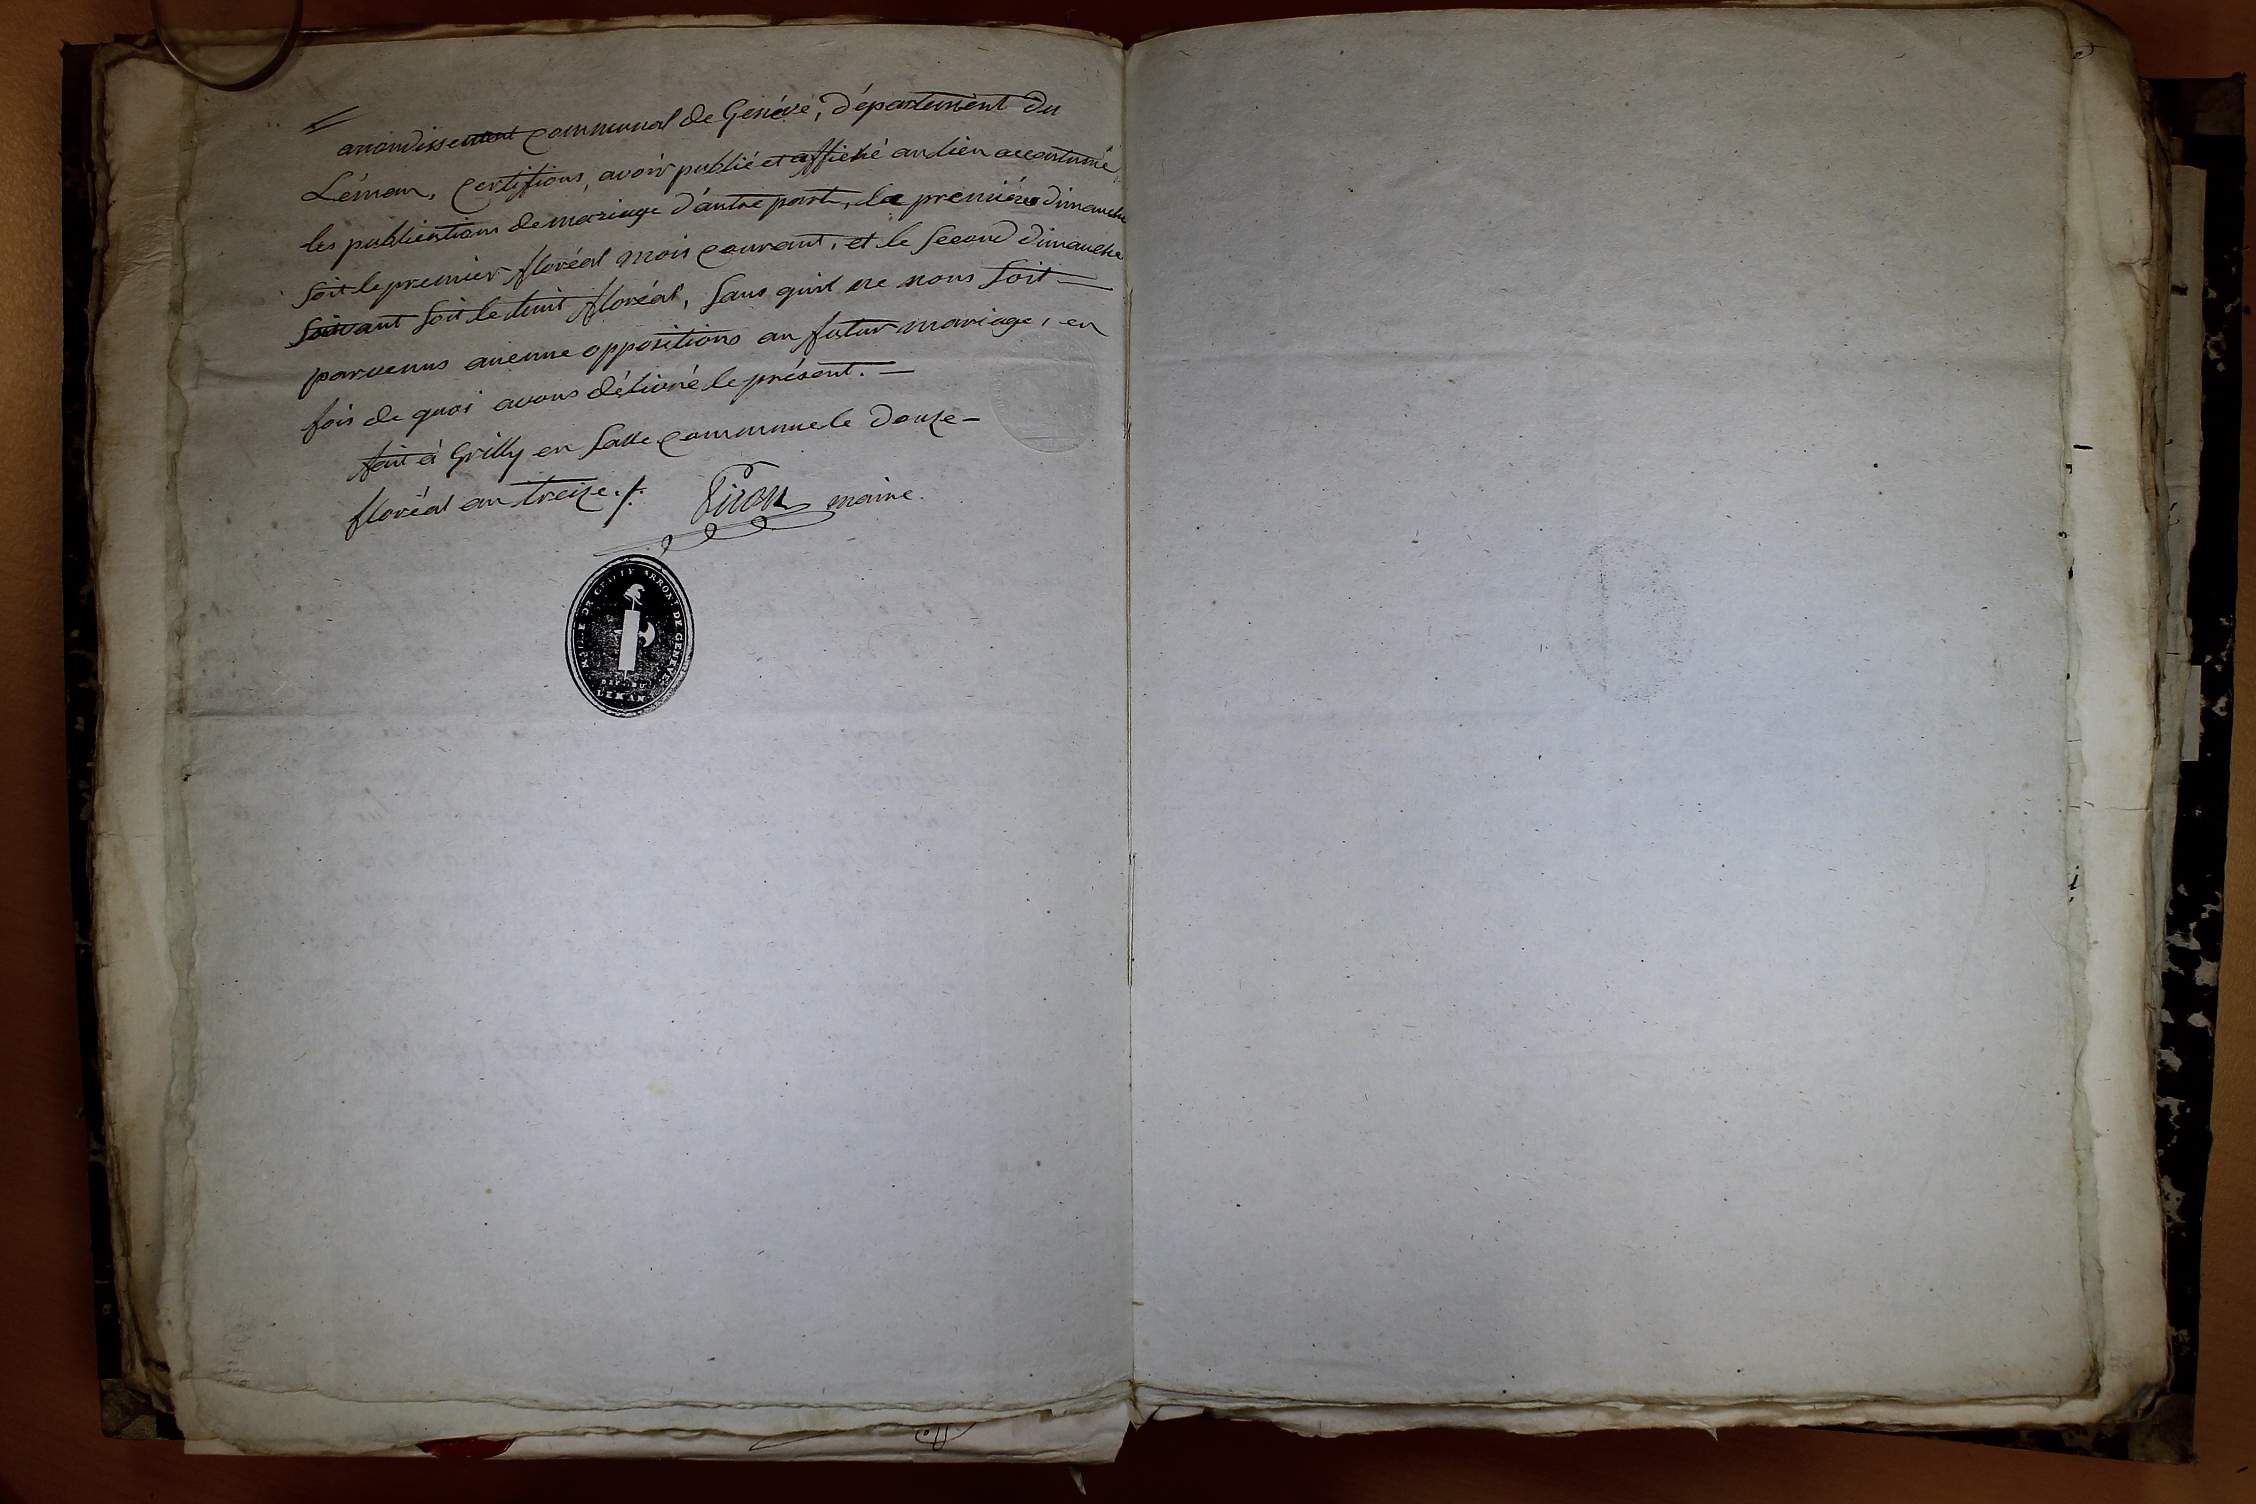 arrondissement communal de Genéve, département du
Léman, certifions, avoir publié et affiché au lieu accoutumé
les publications de mariage d'autre part, le premiére dimanche
soit le premier floréal mois courant, et le second dimanche
suivant soit le huit floréal, sans qu'il ne nous soit
parvenus aucunne oppositions au futur mariage, en
fois de quoi avons délivré le présent.
fait à Grilly en salle commune le douze
floréal an treize ./. Piron maire.
MAIRIE DE GRILLY ARRONT DE GENEVE
DEP. DU
LEMAN